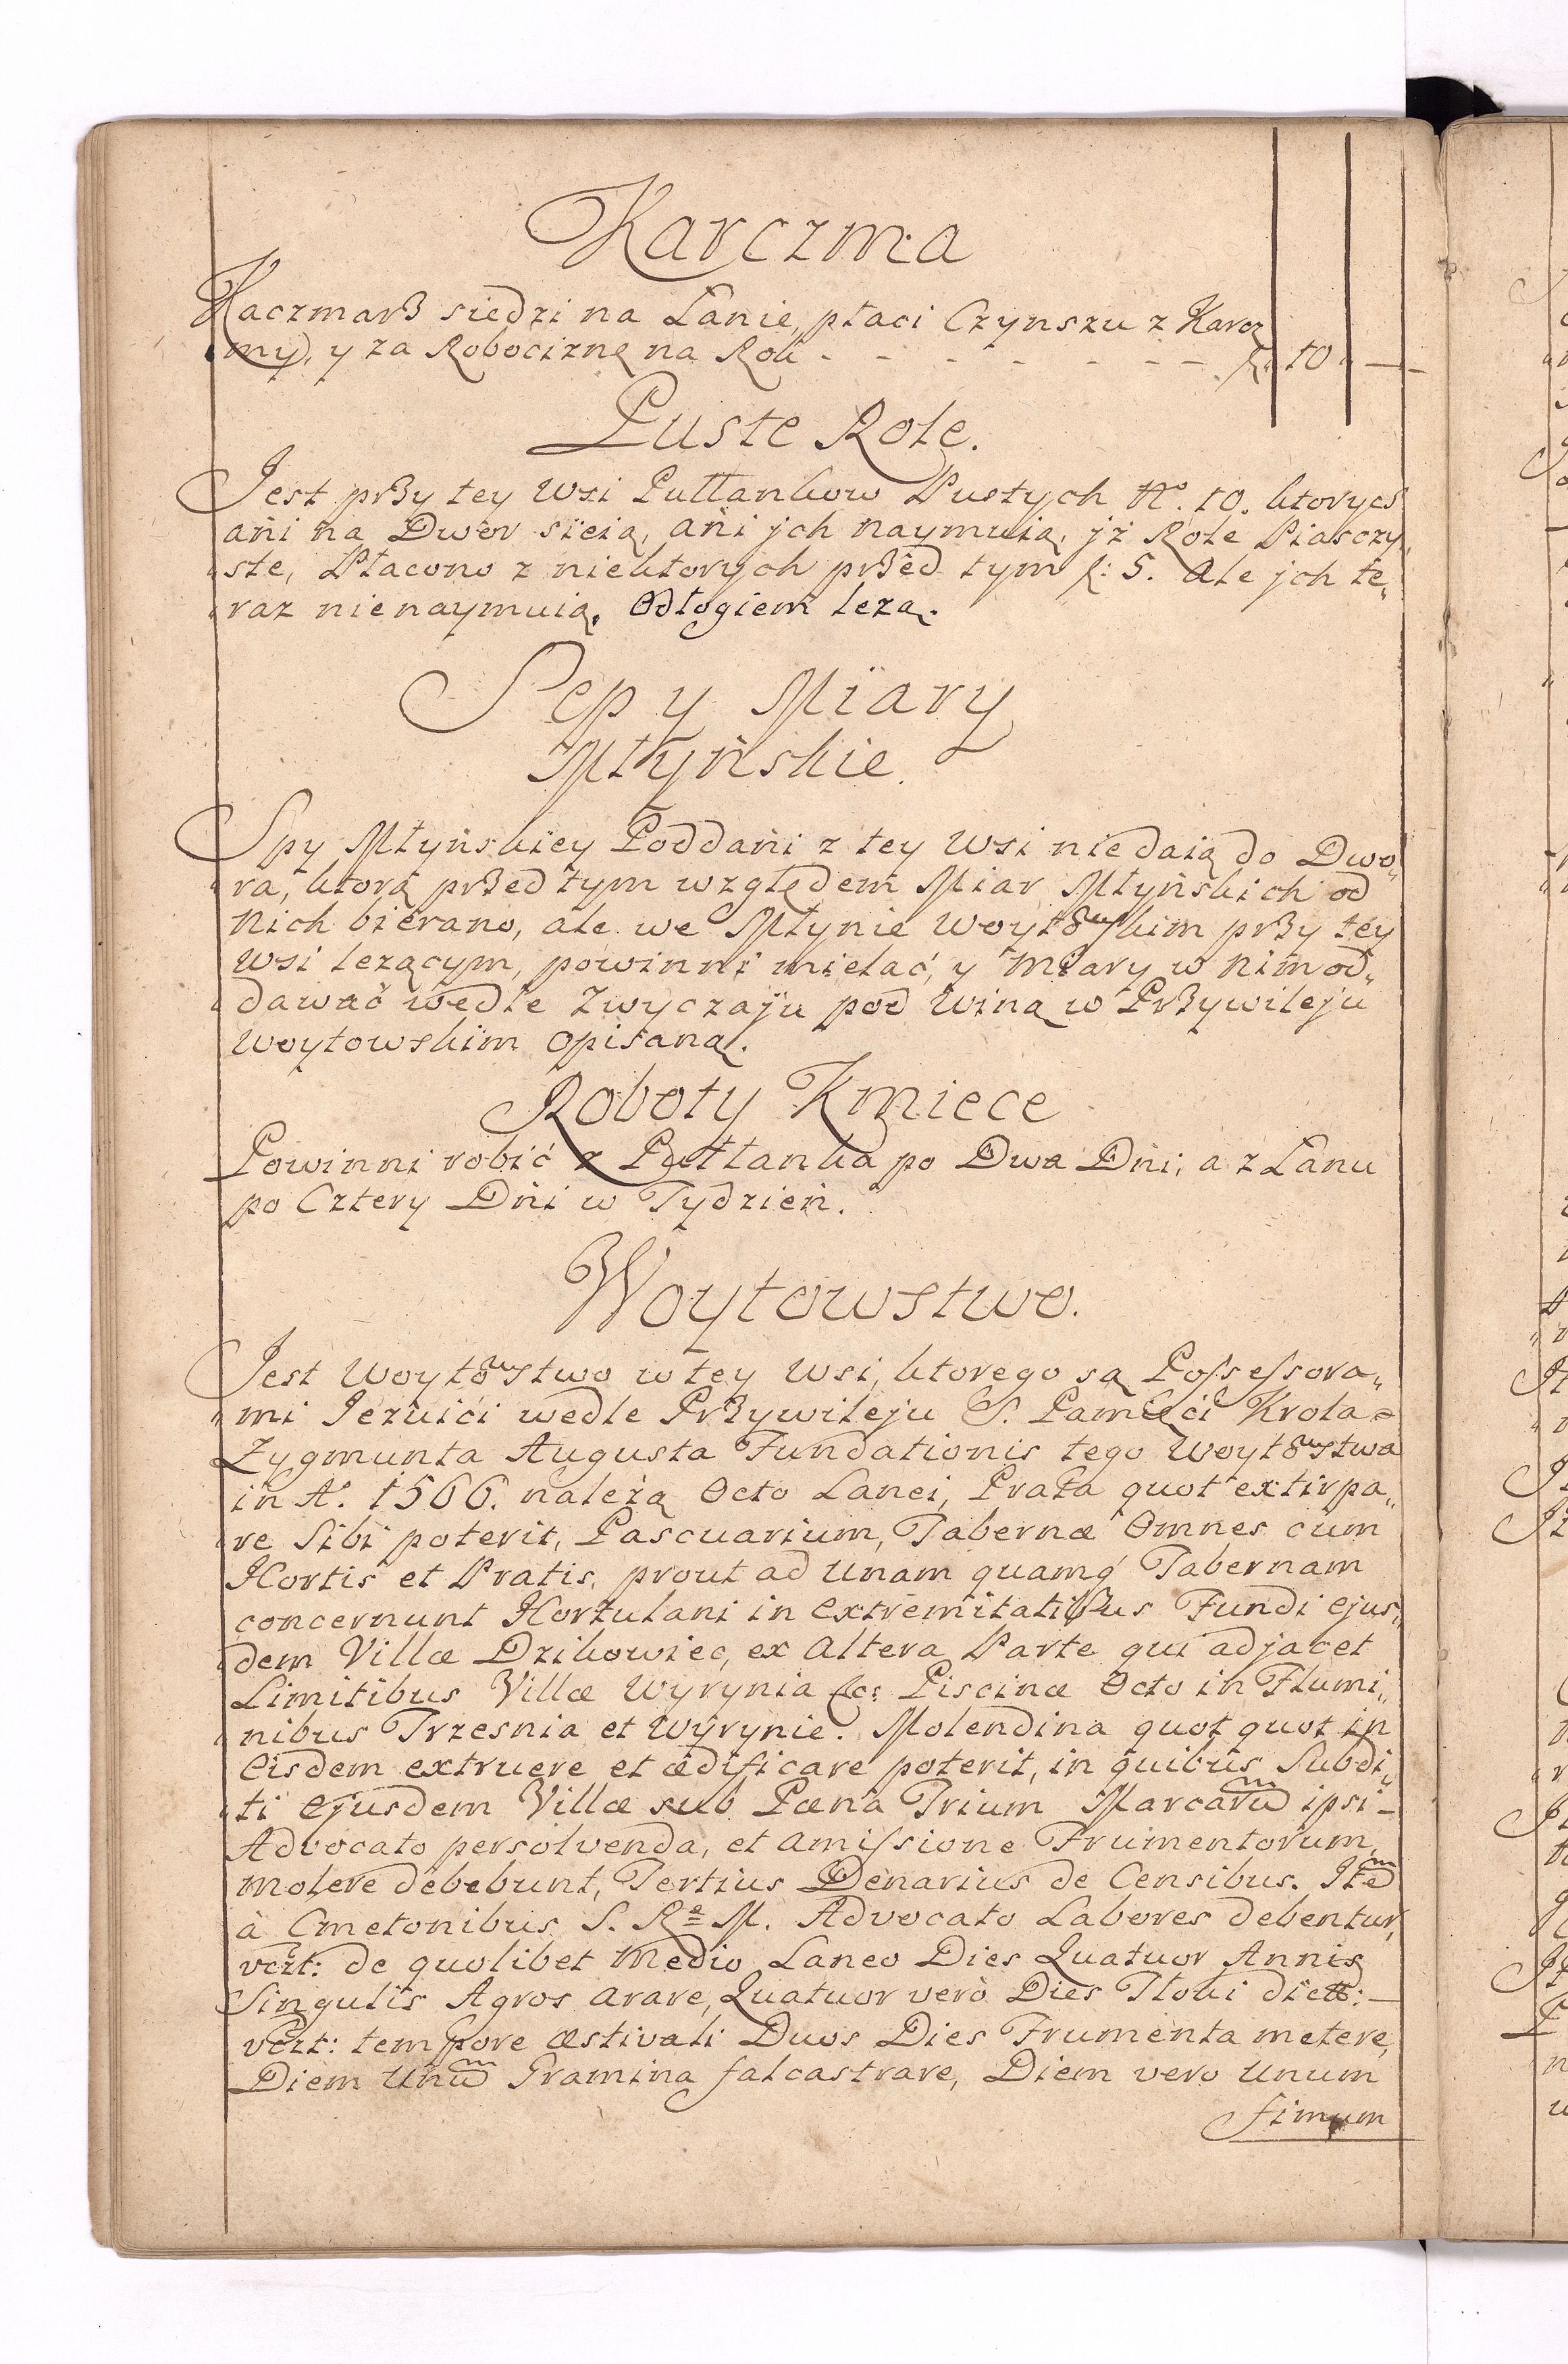 Karczma
Kaczmarz siedzi na Łanie, płaci Czynszu z Karcz
my, y za Robociznę na Roli - - - - - - - f. 10 " —
Puste Role.
Jest przy tey Wsi Pułłankow Pustych No. 10. ktorych
ani na Dwor sieią, ani jch naymuią, jż Role Piasczy„
„ste, Płacono z niektorych przed tym f: 5. Ale jch te„
„raz nienaymuią. Odłogiem leza.
Sep y Miary
Młyńskie.
Spy Młyńskiey Poddani z tey Wsi niedaią do Dwo„
„ra, ktorą przed tym względem Miar Młyńskich od
Nich bierano, ale we Młynie Woytowskim przy tey
Wsi lezącym, powinni mielać, y Miary w Nim od„
„dawać wedle Zwyczaju pod Winą w Przywileju
Woytowskim opisaną.
Roboty Kmiece
Powinni robić z Pułłanka po Dwa Dni, a z Łanu
po Cztery Dni w Tydzień.
Woytowstwo.
Jest Woytowstwo w tey Wsi, ktorego są Possessora„
„mi Jezuici wedle Przywileju S. Pamięci Krola
Zygmunta Augusta Fundationis tego Woytowstwa
in Ao. 1566. należą Octo Lanei, Prata quot extirpa„
„re Sibi poterit, Pascuarium, Tabernæ Omnes cum
Hortis et Pratis, prout ad Unam quamq́ Tabernam
concernunt Hortulani in extremitatibus Fundi ejus„
„dem Villæ Dzikowiec, ex Altera Parte qui adjacet
Limitibus Villæ Wyrynia &c: Piscinæ Octo in Flumi„
„nibus Trzesnia et Wyrynie. Molendina quot quot in
Eisdem extruere et ædificare poterit, in quibus Subdi„
„ti Ejusdem Villæ sub Pæna Trium Marcarũ ipsi
Advocato persolvenda, et amissione Frumentorum,
molere debebunt, Tertius Denarius de Censibus. Itẽ
à Cmetonibus S. Re M. Advocato Labores debentur,
vczt: de quolibet Medio Laneo Dies Quatuor Annis
Singulis Agros arare, Quatuor verò Dies Tłoki dictt:
vczt: tempore æstivali Duos Dies Frumenta metere,
Diem Unũ Gramina falcastrare, Diem vero Unum
fimum